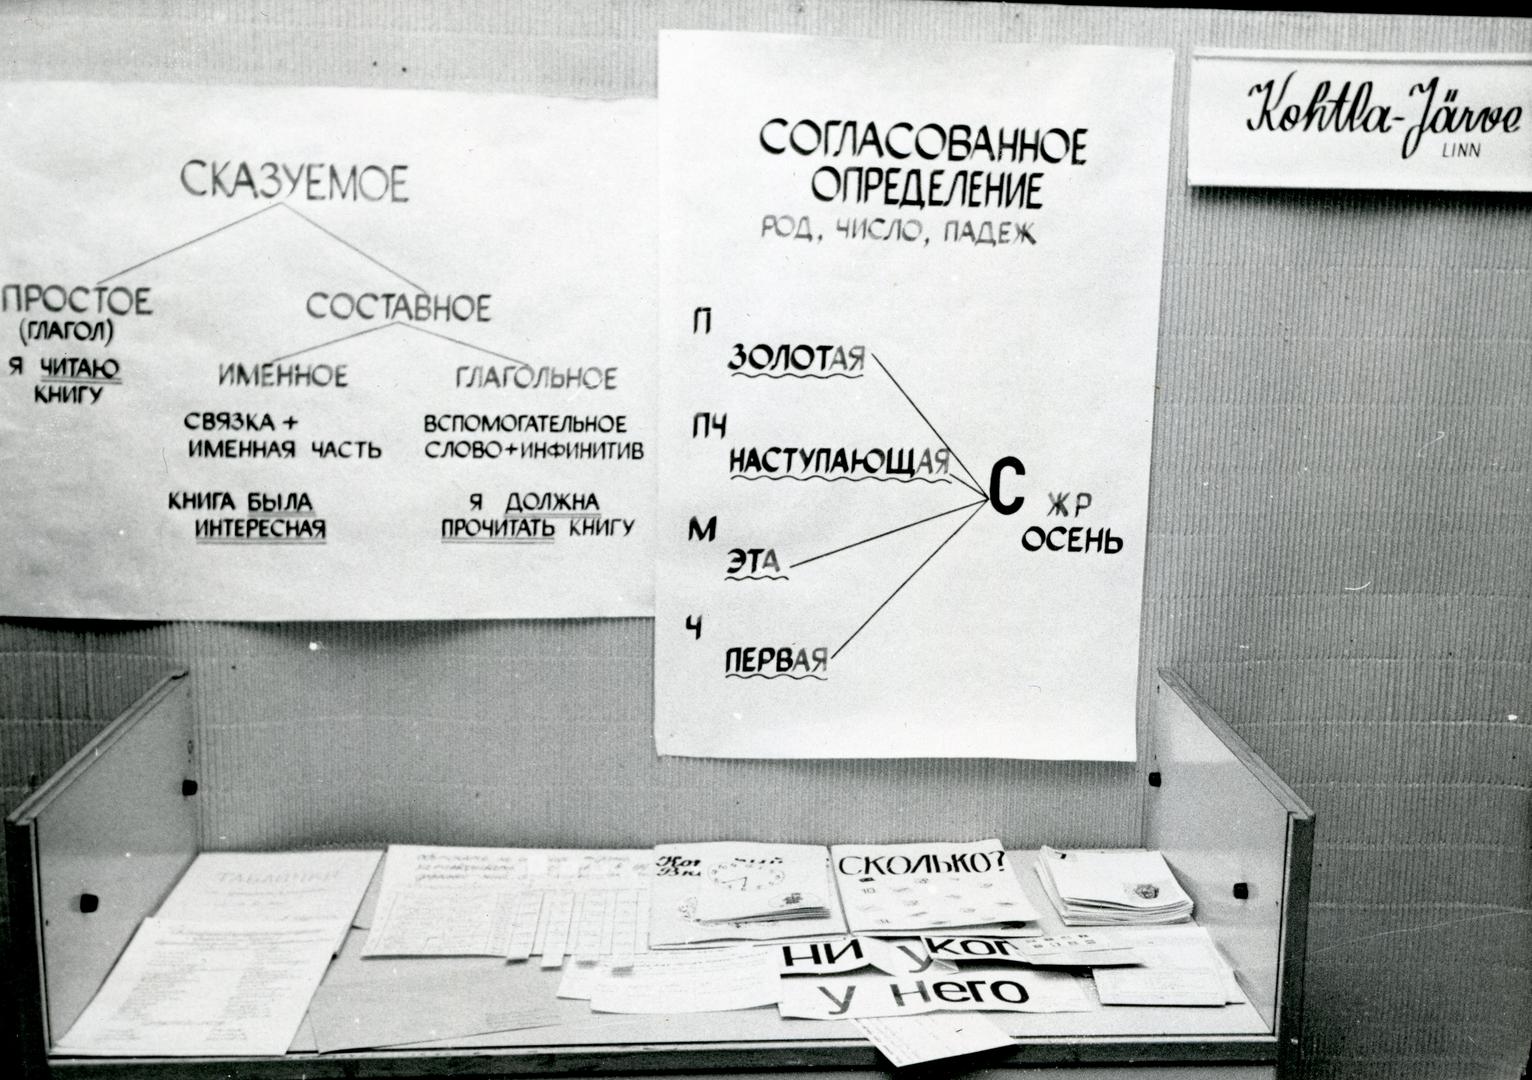 СКАЗУЕМОЕ
ПРОСТОЕ
(ГЛАГОЛ)
Я ЧИТАЮ
КНИГУ
СОСТАВНОЕ
ИМЕННОЕ
СВЯЗКА +
ИМЕННАЯ ЧАСТЬ
КНИГА БЫЛА
ИНТЕРЕСНАЯ
ГЛАГОЛЬНОЕ
ВСПОМОГАТЕЛЬНОЕ
СЛОВО+ИНФИНИТИВ
Я ДОЛЖНА
ПРОЧИТАТЬ КНИГУ
СОГЛАСОВАННОЕ
ОПРЕДЕЛЕНИЕ
РОД, ЧИСЛО, ПАДЕЖ
П
ЗОЛОТАЯ
ПЧ
НАСТУПАЮЩАЯ
М
ЭТА
Ч
ПЕРВАЯ
С ЖР
ОСЕНЬ
Kohtla-Järve
LINN
ТАБЛИЧКИ
СКОЛЬКО?
ни у ког
у него